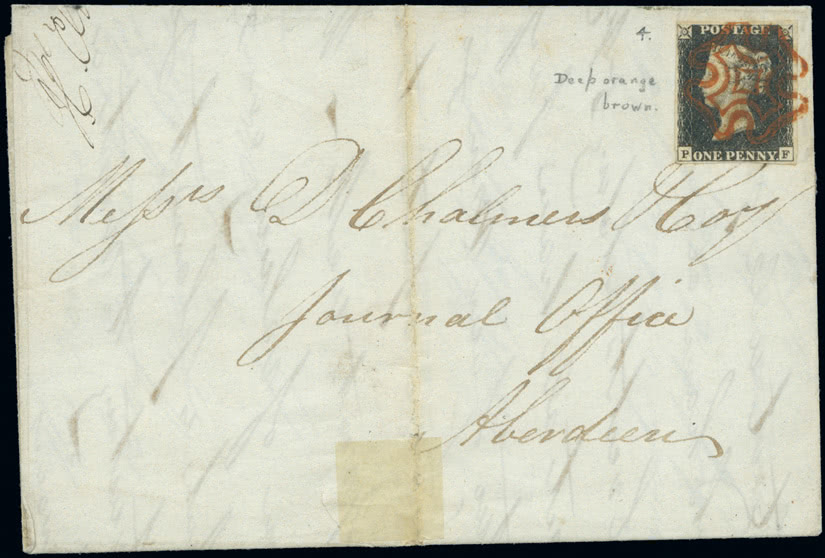 4.
POSTAGE
Deep orange
brown.
P ONE PENNY F
Messrs D Chalmers & Coy
Journal Office
Aberdeen